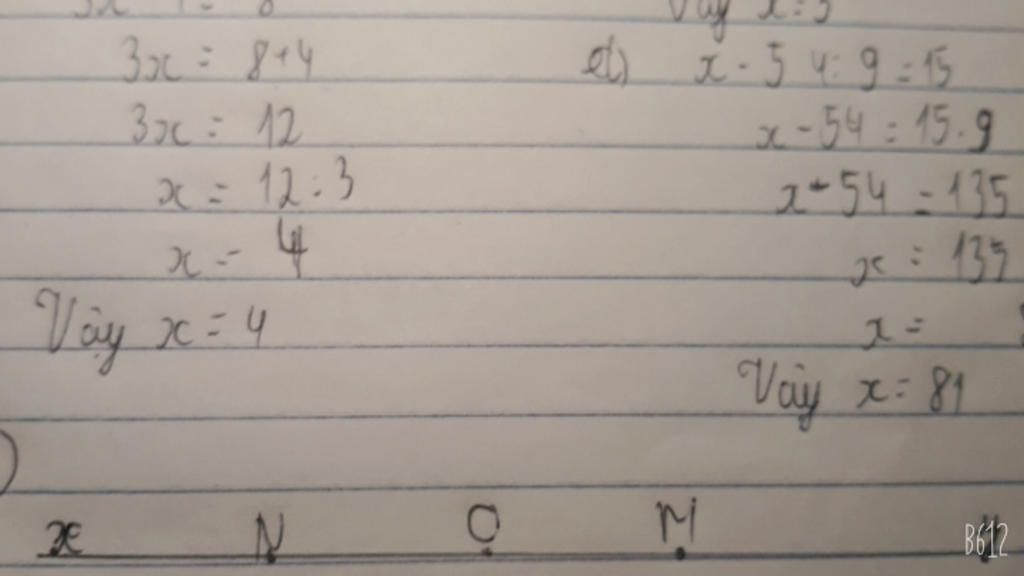 3x = 8+4
3x = 12
x = 12 : 3
x = 4
Vậy x = 4
Vậy x = 5
d) x - 54 : 9 = 15
x - 54 = 15 . 9
x - 54 = 135
x = 135
x =
Vậy x = 81
x N O M
B612